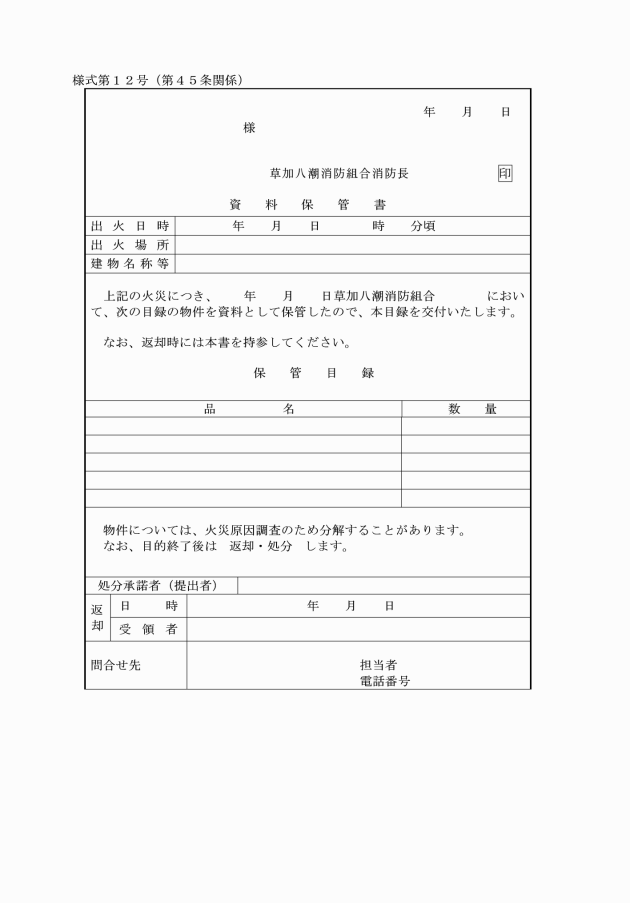 様式第１２号（第４５条関係）
年　　月　　日
様
草加八潮消防組合消防長　　　　　　　印
資　料　保　管　書
出火日時　　　　年　　月　　日　　　　時　　分頃
出火場所
建物名称等
上記の火災につき、　　年　　月　　日草加八潮消防組合　　　　におい
て、次の目録の物件を資料として保管したので、本目録を交付いたします。
なお、返却時には本書を持参してください。
保　管　目　録
品　　　　　名　　　　　数　　量
物件については、火災原因調査のため分解することがあります。
なお、目的終了後は　返却・処分　します。
処分承諾者（提出者）
返却　日　　時　　　　年　　月　　日
受　領　者
問合せ先　　　　　担当者
電話番号